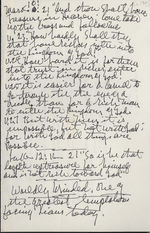 21 "And thou shalt have
treasure in heaven; come take
up the cross and follow me
23 How hardly shall they
that have riches enter into
the Kingdom of God!
how hard is it for them
that trust in riches to enter
into the Kingdom of God!
25 It is easier for a camel to
go through the eye of a
needle than for a rich man
to enter the Kingdom of God
27 With men it is
impossible, but not with God:
for with God all things are
possible.
12: 21 "So is he that
layeth up treasure for himself
and is not rich toward God."
Worldly Minded, One of
the Greatest Temptations
facing Texans, today.